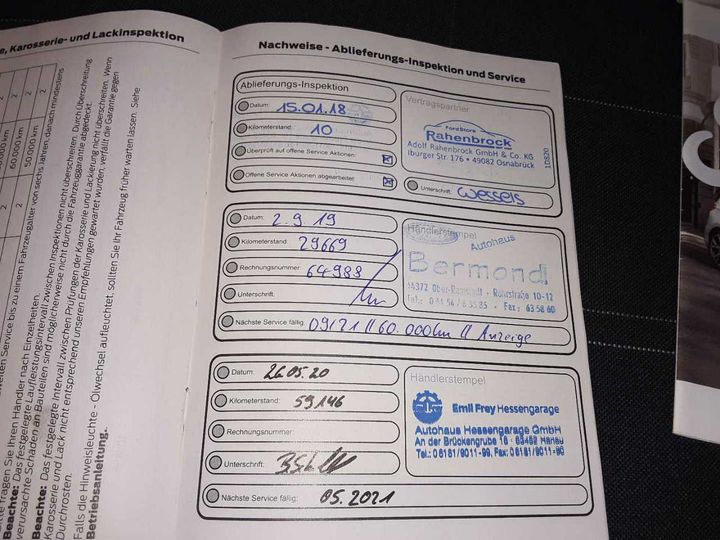 e, Karosserie- und Lackinspektion
2
2
2
2
2
60.000 km
50.000 km
2
weiten Service bis zu einem Fahrzeugalter von sechs Jahren, danach mindestens
fragen Sie Ihren Händler nach Einzelheiten.
Beachte: Das festgelegte Laufleistungsintervall zwischen Inspektionen nicht überschreiten. Durch Überschreitung
verursachte Schäden an Bauteilen sind möglicherweise nicht durch die Fahrzeuggarantie abgedeckt.
Beachte: Das festgelegte Intervall zwischen Prüfungen der Karosserie und Lackierung nicht überschreiten. Wenn
Karosserie und Lack nicht entsprechend unseren Empfehlungen gewartet wurden, verfällt die Garantie gegen
Durchrosten.
Falls die Hinweisleuchte - Ölwechsel aufleuchtet, sollten Sie Ihr Fahrzeug früher warten lassen. Siehe
Betriebsanleitung.
Nachweise - Ablieferungs-Inspektion und Service
Ablieferungs-Inspektion
Datum: 15.01.18
Kilometerstand: 10
Überprüft auf offene Service Aktionen:
Offene Service Aktionen abgearbeitet:
Vertragspartner
FordStore
Rahenbrock
Adolf Rahenbrock GmbH & Co. KG
Iburger Str. 176 • 49082 Osnabrück
10820
Unterschrift: Wessels
Datum: 2.9.19
Kilometerstand: 29669
Rechnungsnummer: 64988
Unterschrift:
Nächste Service fällig: 09/21 // 60.000km // Anzeige
Händlerstempel
Autohaus
Bermond
64372 Ober-Ramstadt - Röhrstraße 10-12
Fax: 63 58 60
Datum: 26.05.20
Kilometerstand: 59146
Rechnungsnummer:
Unterschrift:
Nächste Service fällig: 05.2021
Händlerstempel
Emil Frey Hessengarage
Autohaus Hessengarage GmbH
An der Brückengrube 16 · 63452 Hanau
Tel.: 06181/9011-99, Fax: 06181/9011-90